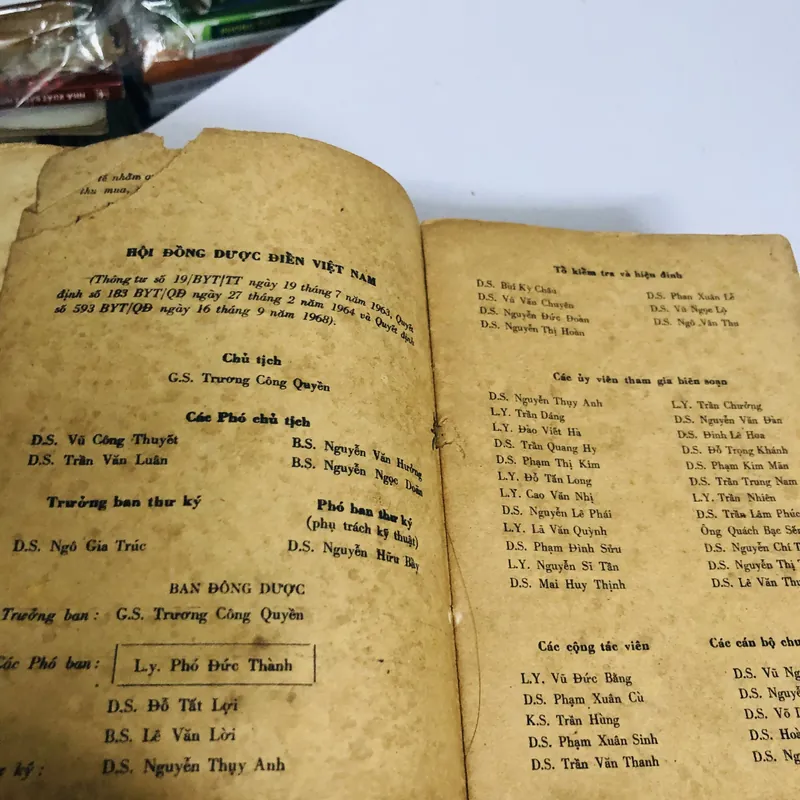 tế nhằm
thu mua,
HỘI ĐỒNG DƯỢC ĐIỂN VIỆT NAM
(Thông tư số 19/BYT/TT ngày 19 tháng 7 năm 1963, Quyết
định số 183 BYT/QĐ ngày 27 tháng 2 năm 1964 và Quyết định
số 593 BYT/QĐ ngày 16 tháng 9 năm 1968).
Chủ tịch
G.S. Trương Công Quyền
Các Phó chủ tịch
D.S. Vũ Công Thuyết B.S. Nguyễn Văn Hưởng
D.S. Trần Văn Luân B.S. Nguyễn Ngọc Doãn
Trưởng ban thư ký Phó ban thư ký
(phụ trách kỹ thuật)
D.S. Ngô Gia Trúc D.S. Nguyễn Hữu Bảy
BAN ĐÔNG DƯỢC
Trưởng ban : G.S. Trương Công Quyền
Các Phó ban : L.y. Phó Đức Thành
D.S. Đỗ Tất Lợi
B.S. Lê Văn Lời
ký : D.S. Nguyễn Thụy Anh
Tổ kiểm tra và hiệu đính
D.S. Bùi Kỳ Châu D.S. Phan Xuân Lễ
D.S. Vũ Văn Chuyên D.S. Vũ Ngọc Lộ
D.S. Nguyễn Đức Đoàn D.S. Ngô Văn Thu
D.S. Nguyễn Thị Hoàn
Các ủy viên tham gia biên soạn
D.S. Nguyễn Thụy Anh L.Y. Trần Chưởng
L.Y. Trần Dáng D.S. Nguyễn Văn Đàn
L.Y. Đào Viết Hà D.S. Đinh Lê Hoa
D.S. Trần Quang Hy D.S. Đỗ Trọng Khánh
D.S. Phạm Thị Kim D.S. Phạm Kim Mãn
L.Y. Đỗ Tấn Long D.S. Trần Trung Nam
L.Y. Cao Văn Nhị L.Y. Trần Nhiên
D.S. Nguyễn Lê Phái D.S. Trần Lâm Phúc
L.Y. Lã Văn Quỳnh Ông Quách Bạc
D.S. Phạm Đình Sửu D.S. Nguyễn Chí
L.Y. Nguyễn Sĩ Tần D.S. Nguyễn Thị
D.S. Mai Huy Thịnh D.S. Lê Văn
Các cộng tác viên Các cán bộ
L.Y. Vũ Đức Bằng D.S. Vũ
D.S. Phạm Xuân Cù D.S.
K.S. Trần Hùng D.S. Võ
D.S. Phạm Xuân Sinh D.S.
D.S. Trần Văn Thanh D.S.